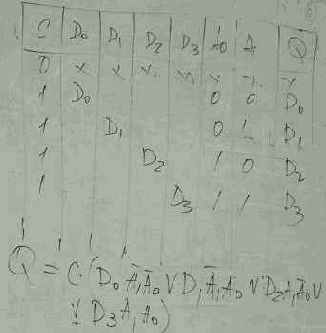 C D₀ D₁ D₂ D₃ A₀ A Q
0 x x x x x x x
1 D₀ 0 0 D₀
1 D₁ 0 1 D₁
1 D₂ 1 0 D₂
1 D₃ 1 1 D₃
Q = C·(D₀ Ā₁Ā₀ V D₁ Ā₁A₀ V D₂A₁Ā₀ V
V D₃A₁A₀)